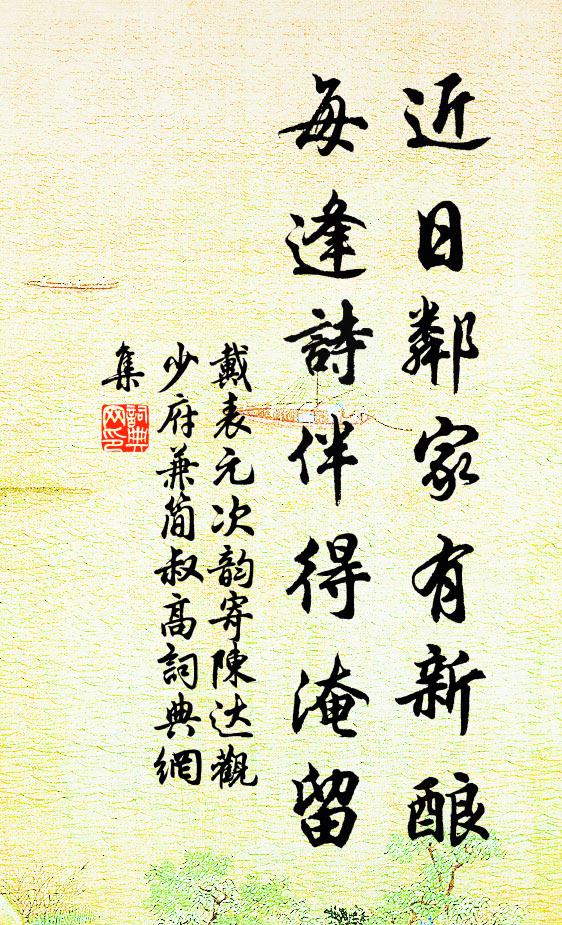 近日鄰家有新酿
每逢詩伴得淹留
戴表元次韵寄陳达觀
少府兼简叔高詞典網
集
詞典
网印